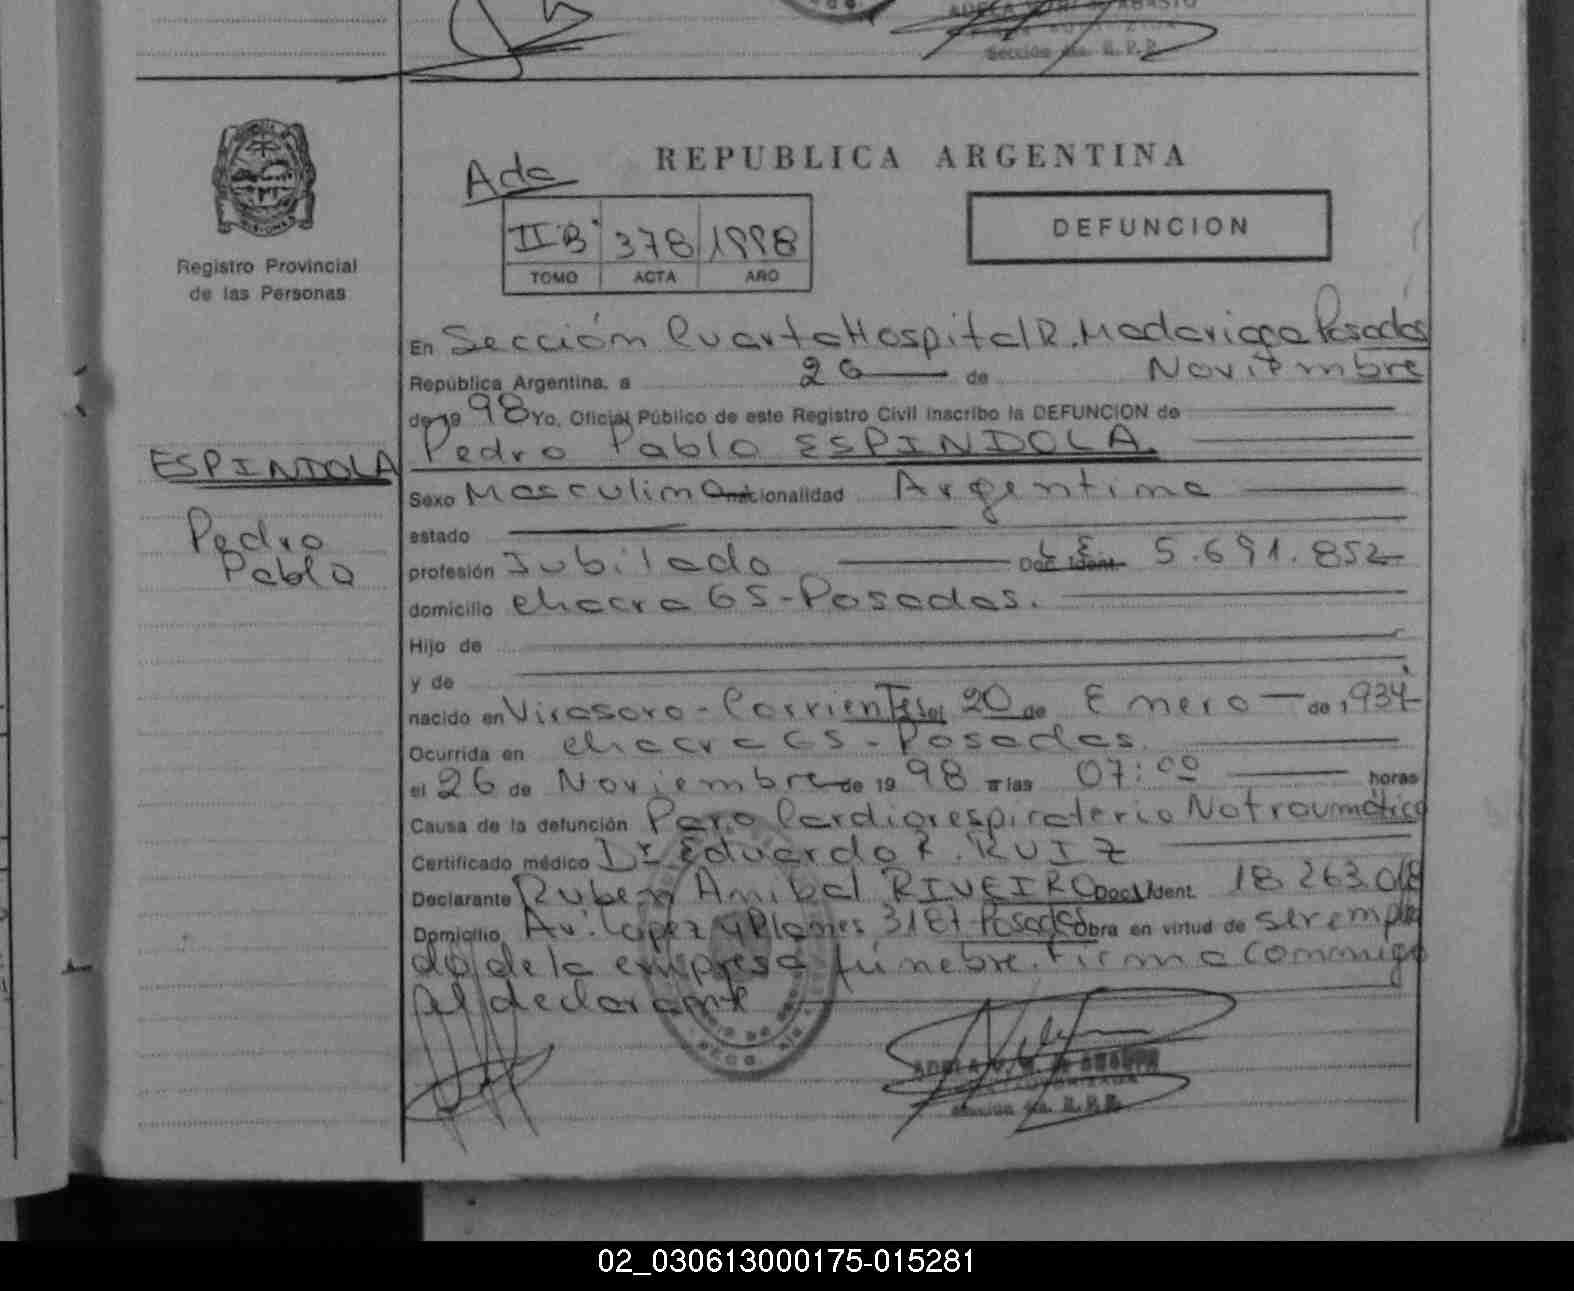 Sección 4a. R.P.P.
REPUBLICA ARGENTINA
Registro Provincial
de las Personas
Ada
II·B 378 1998
TOMO ACTA AÑO
DEFUNCION
En Sección Cuarta Hospital R. Madariaga Posadas
República Argentina, a 26 de Noviembre
de 19 98 Yo, Oficial Público de este Registro Civil inscribo la DEFUNCION de
Pedro Pablo ESPINDOLA
ESPINDOLA
Pedro
Pablo
Sexo Masculino nacionalidad Argentina
estado
profesión Jubilado Doc. Ident. L.E. 5.691.852
domicilio chacra 65-Posadas.
Hijo de
y de
nacido en Virasoro-Corrientes el 20 de Enero de 1934
Ocurrida en chacra 65-Posadas.
el 26 de Noviembre de 19 98 a las 07:00 horas
Causa de la defunción Paro Cardiorespiratorio No traumático
Certificado médico Dr Eduardo R. RUIZ
Declarante Ruben Anibal RIVEIRO Doc. Ident. 18.263.018
Domicilio Av. Lopez y Planes 3187 Posadas Obra en virtud de ser emplea
do de la empresa fúnebre. Firma conmigo
el declarante
Sección 4a. R.P.P.
02_030613000175-015281